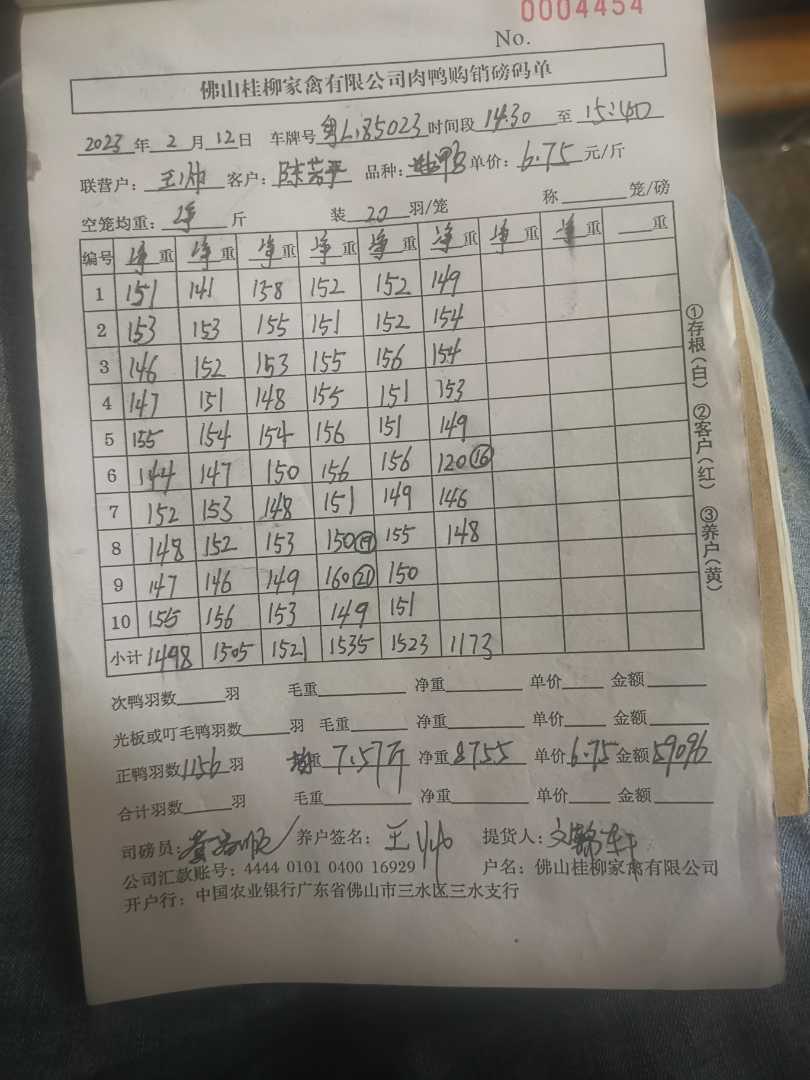 0004454
No.
佛山桂柳家禽有限公司肉鸭购销磅码单
2023 年 2 月 12 日 车牌号 粤L·85023 时间段 14:30 至 15:40
联营户： 王 客户： 陈芳平 品种： 鸭 单价： 6.75 元/斤
空笼均重： 净 斤 装 20 羽/笼 称 笼/磅
编号 净重 净重 净重 净重 净重 净重 净重 净重 重
1 151 141 138 152 152 149
2 153 153 155 151 152 154
3 146 152 153 155 156 154
4 147 151 148 155 151 153
5 155 154 154 156 151 149
6 144 147 150 156 156 120⑯
7 152 153 148 151 149 146
8 148 152 153 150⑲ 155 148
9 147 146 149 160㉑ 150
10 155 156 153 149 151
小计 1498 1505 1521 1535 1523 1173
①存根（白） ②客户（红） ③养户（黄）
次鸭羽数 羽 毛重 净重 单价 金额
光板或叮毛鸭羽数 羽 毛重 净重 单价 金额
正鸭羽数 1156 羽 均重 7.57斤 净重 8755 单价 6.75 金额 59096
合计羽数 羽 毛重 净重 单价 金额
司磅员： 养户签名： 王 提货人：
公司汇款账号：4444 0101 0400 16929 户名：佛山桂柳家禽有限公司
开户行：中国农业银行广东省佛山市三水区三水支行